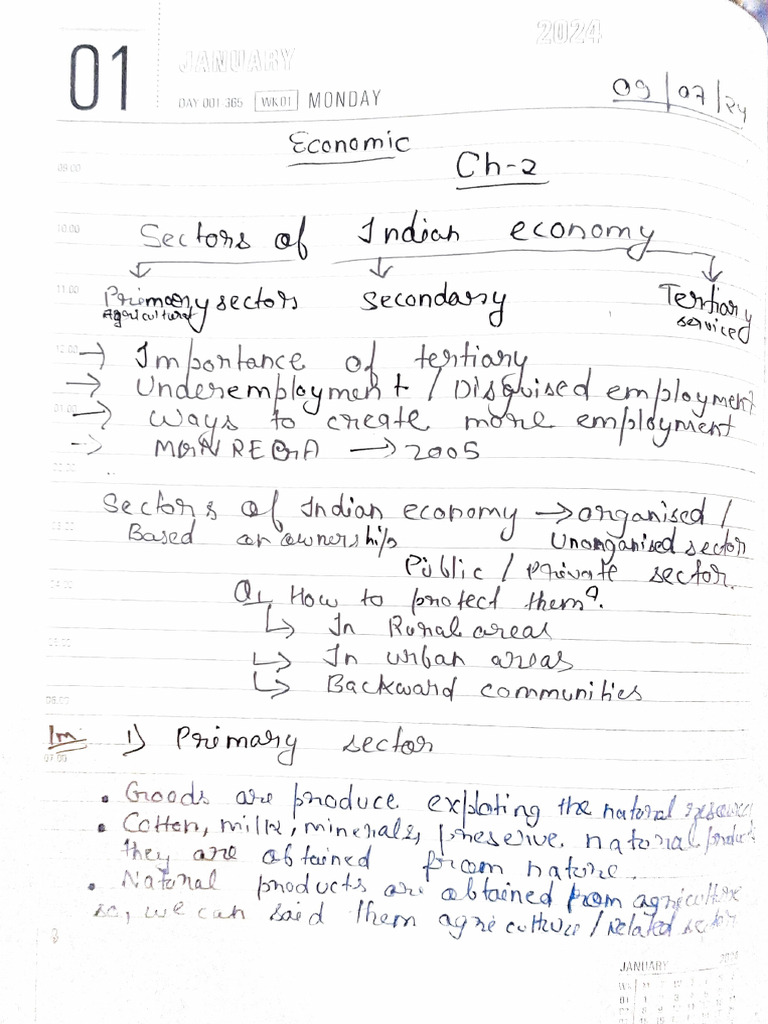 2024
01 JANUARY
DAY 001-365 WK01 MONDAY
09/07/24
Economic
Ch-2
09:00
10:00
Sectors of Indian economy
11:00
Primary sectors Secondary Tertiary
Agricultural serviced
12:00
→ Importance of tertiary
→ Underemployment / Disguised employment
01:00
→ Ways to create more employment
→ MGNREGA → 2005
02:00
Sectors of Indian economy → organised /
03:00
Based on ownership Unorganised sector
Public / Private sector.
04:00
Q1 How to protect them?
↳ In Rural areas
05:00
↳ In urban areas
↳ Backward communities
06:00
Im 1) Primary sector
07:00
• Goods are produce exploting the natural resources
• Cotton, milk, minerals, preserve natural products
they are obtained from nature.
• Natural products are obtained from agriculture
so, we can said them agriculture / related sector
JANUARY 2024